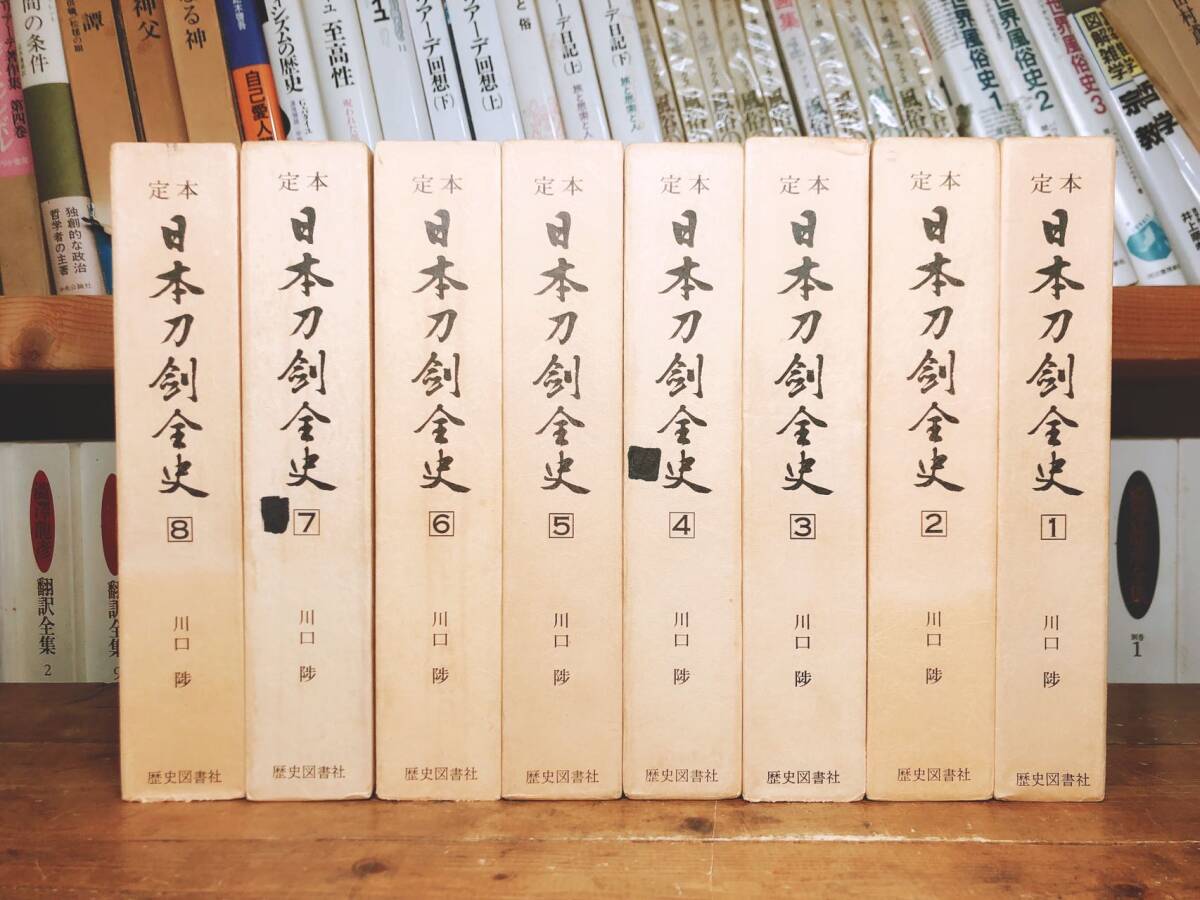 定本
日本刀剣全史
8
川口 陟
歴史図書社
定本
日本刀剣全史
7
川口 陟
歴史図書社
定本
日本刀剣全史
6
川口 陟
歴史図書社
定本
日本刀剣全史
5
川口 陟
歴史図書社
定本
日本刀剣全史
4
川口 陟
歴史図書社
定本
日本刀剣全史
3
川口 陟
歴史図書社
定本
日本刀剣全史
2
川口 陟
歴史図書社
定本
日本刀剣全史
1
川口 陟
歴史図書社
第四巻
間の条件
独創的な政治
哲学者の主著
中央公論社
譚
神父
る神
自己愛人
ィシズムの歴史
至高性
アーデ回想(下)
アーデ回想(上)
と俗
ーデ日記(上)
旅と思索と人
ーデ日記(下)
旅と思索と人
世界風俗史1
世界風俗史2
世界風俗史3
図解雑学
宗教学
翻訳全集
2
翻訳全集
別巻
1